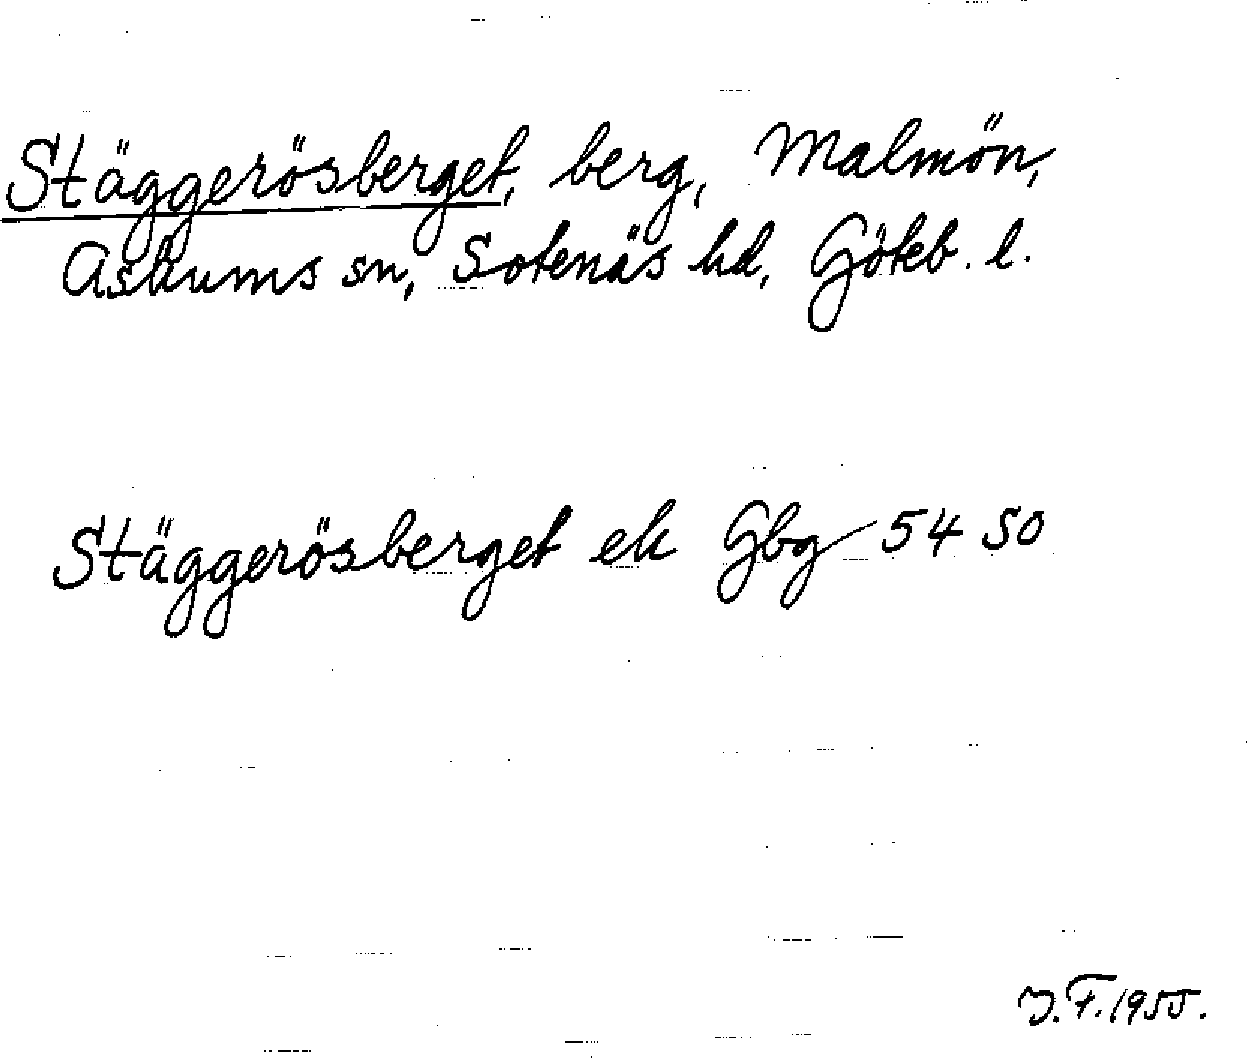 Stäggerösberget, berg, Malmön,
Askums sn, Sotenäs hd, Göteb. l.
Stäggerösberget ek Gbg 54 SO
J.F.1955.